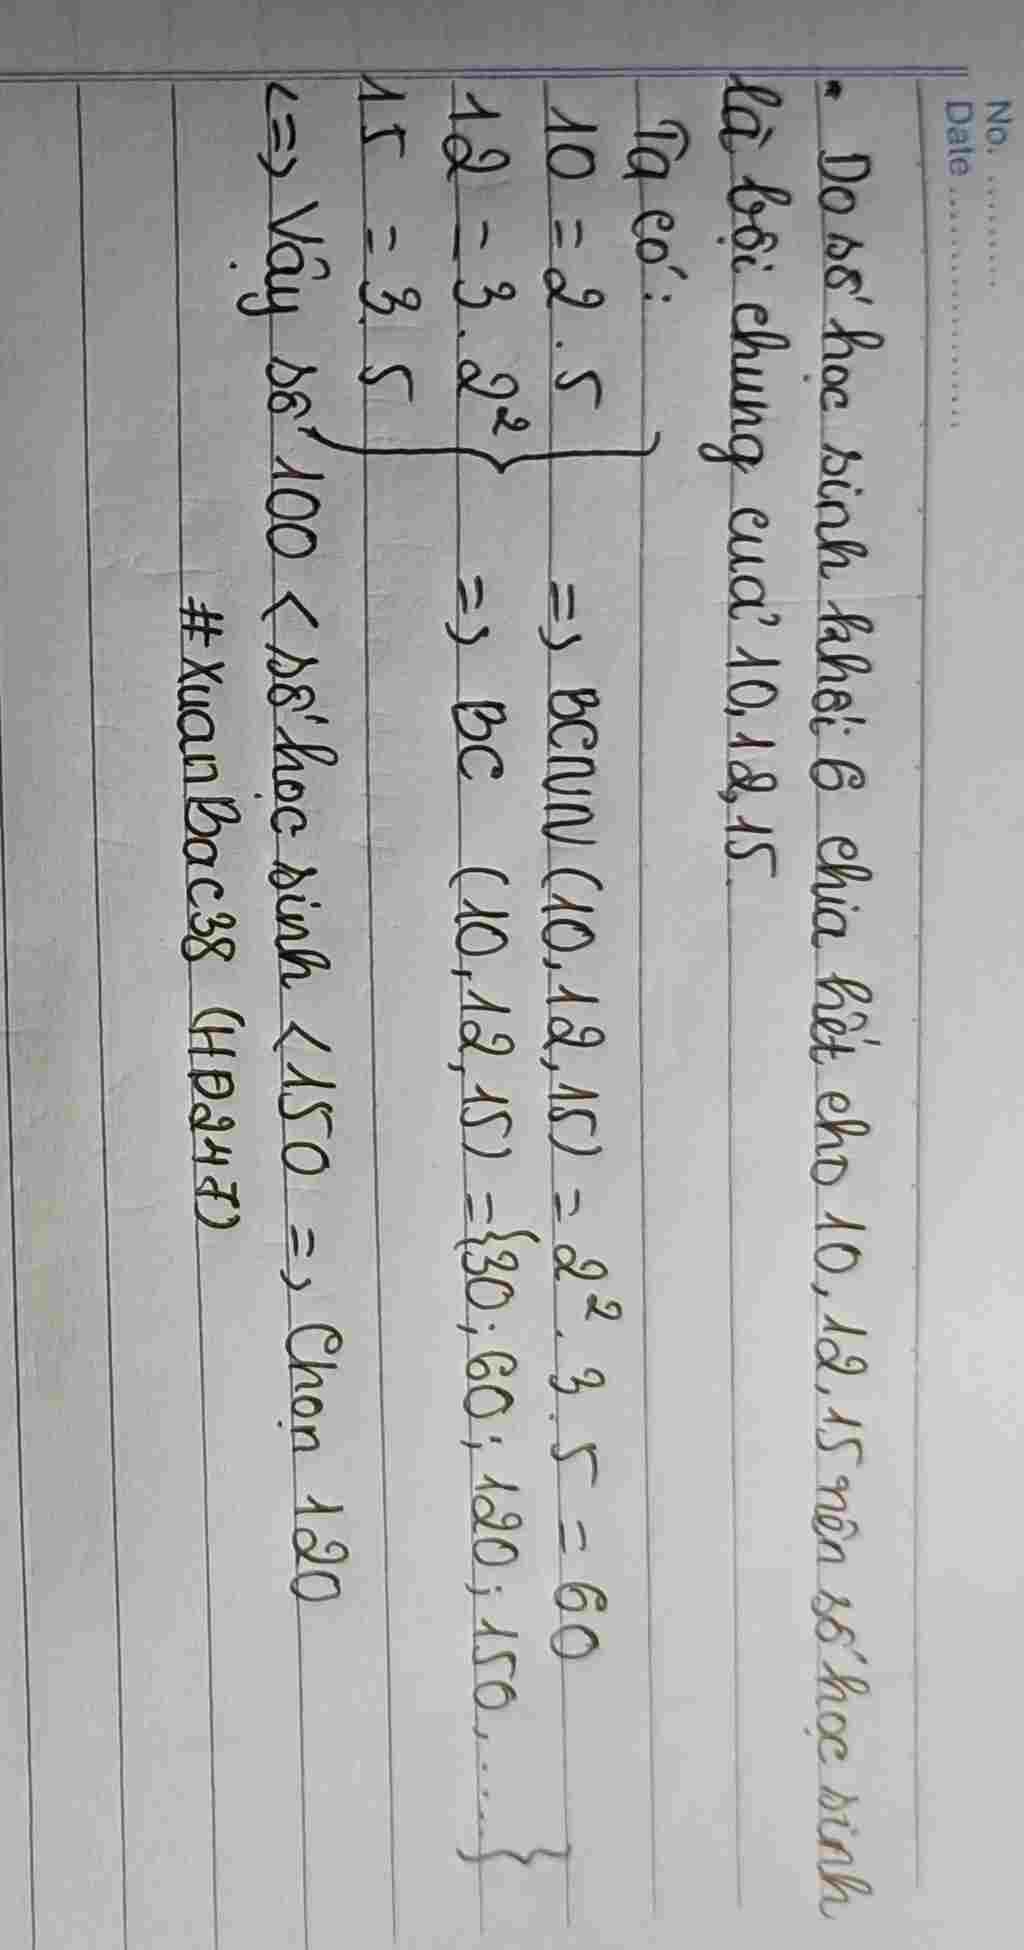 No. ............
Date ........................
• Do số học sinh khối 6 chia hết cho 10, 12, 15 nên số học sinh
là bội chung của 10, 12, 15.
Ta có:
10 = 2 . 5 => BCNN (10, 12, 15) = 2² . 3 . 5 = 60
12 = 3 . 2² } => BC (10, 12, 15) = {30; 60; 120; 150, .....}
15 = 3 . 5
<=> Vậy số 100 < số học sinh < 150 => Chọn 120
#XuanBac38 (HD247)